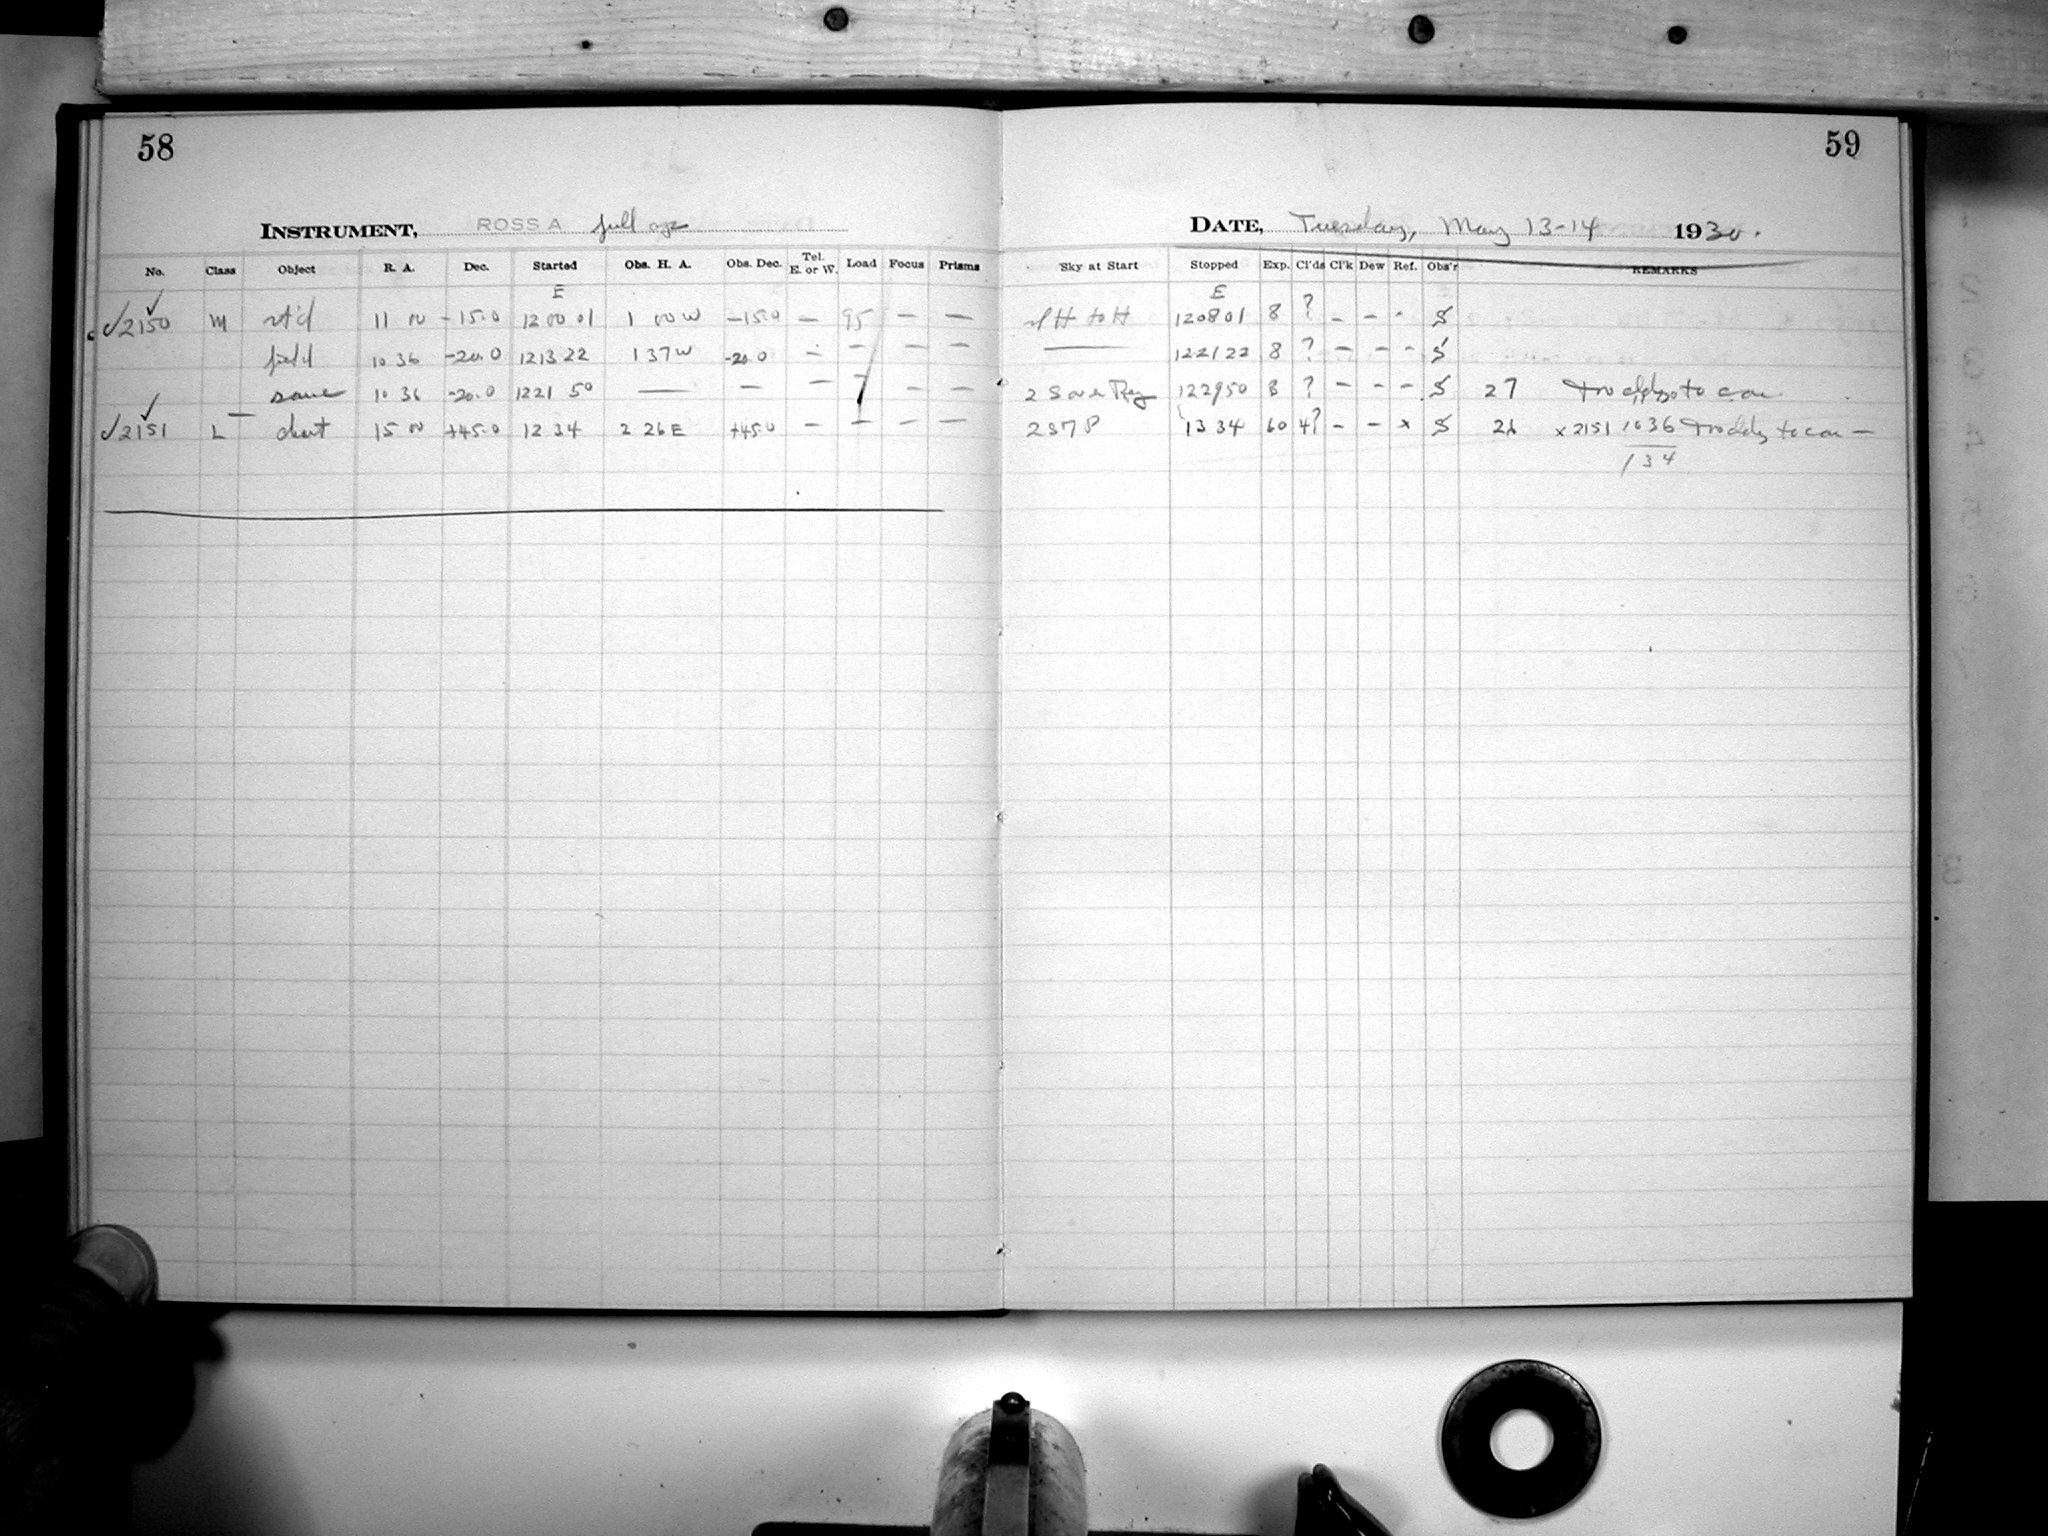 58
59
INSTRUMENT, ROSS A full
DATE, Tuesday, May 13-14 1930.
No. Class Object R. A. Dec. Started Obs. H. A. Obs. Dec. Tel. E. or W. Load Focus Prisms Sky at Start Stopped Exp. Cl'ds Cl'k Dew Ref. Obs'r REMARKS
E E
✓2150 M st'd 11 00 -15.0 12 00 01 1 00 W -15.0 — 95 — — to H 12 08 01 8 ? - - - S
field 10 36 -20.0 12 13 22 1 37 W -20.0 — — — — — 12 21 22 8 ? - - - S
same 10 36 -20.0 12 21 50 — — — — — — 12 29 50 8 ? - - - S 27 to
✓2151 L chart 15 00 +45.0 12 34 2 26 E +45.0 — — — — 2 37 P 13 34 60 4? - - x S 26 x 2151 10 36 to —
1 34